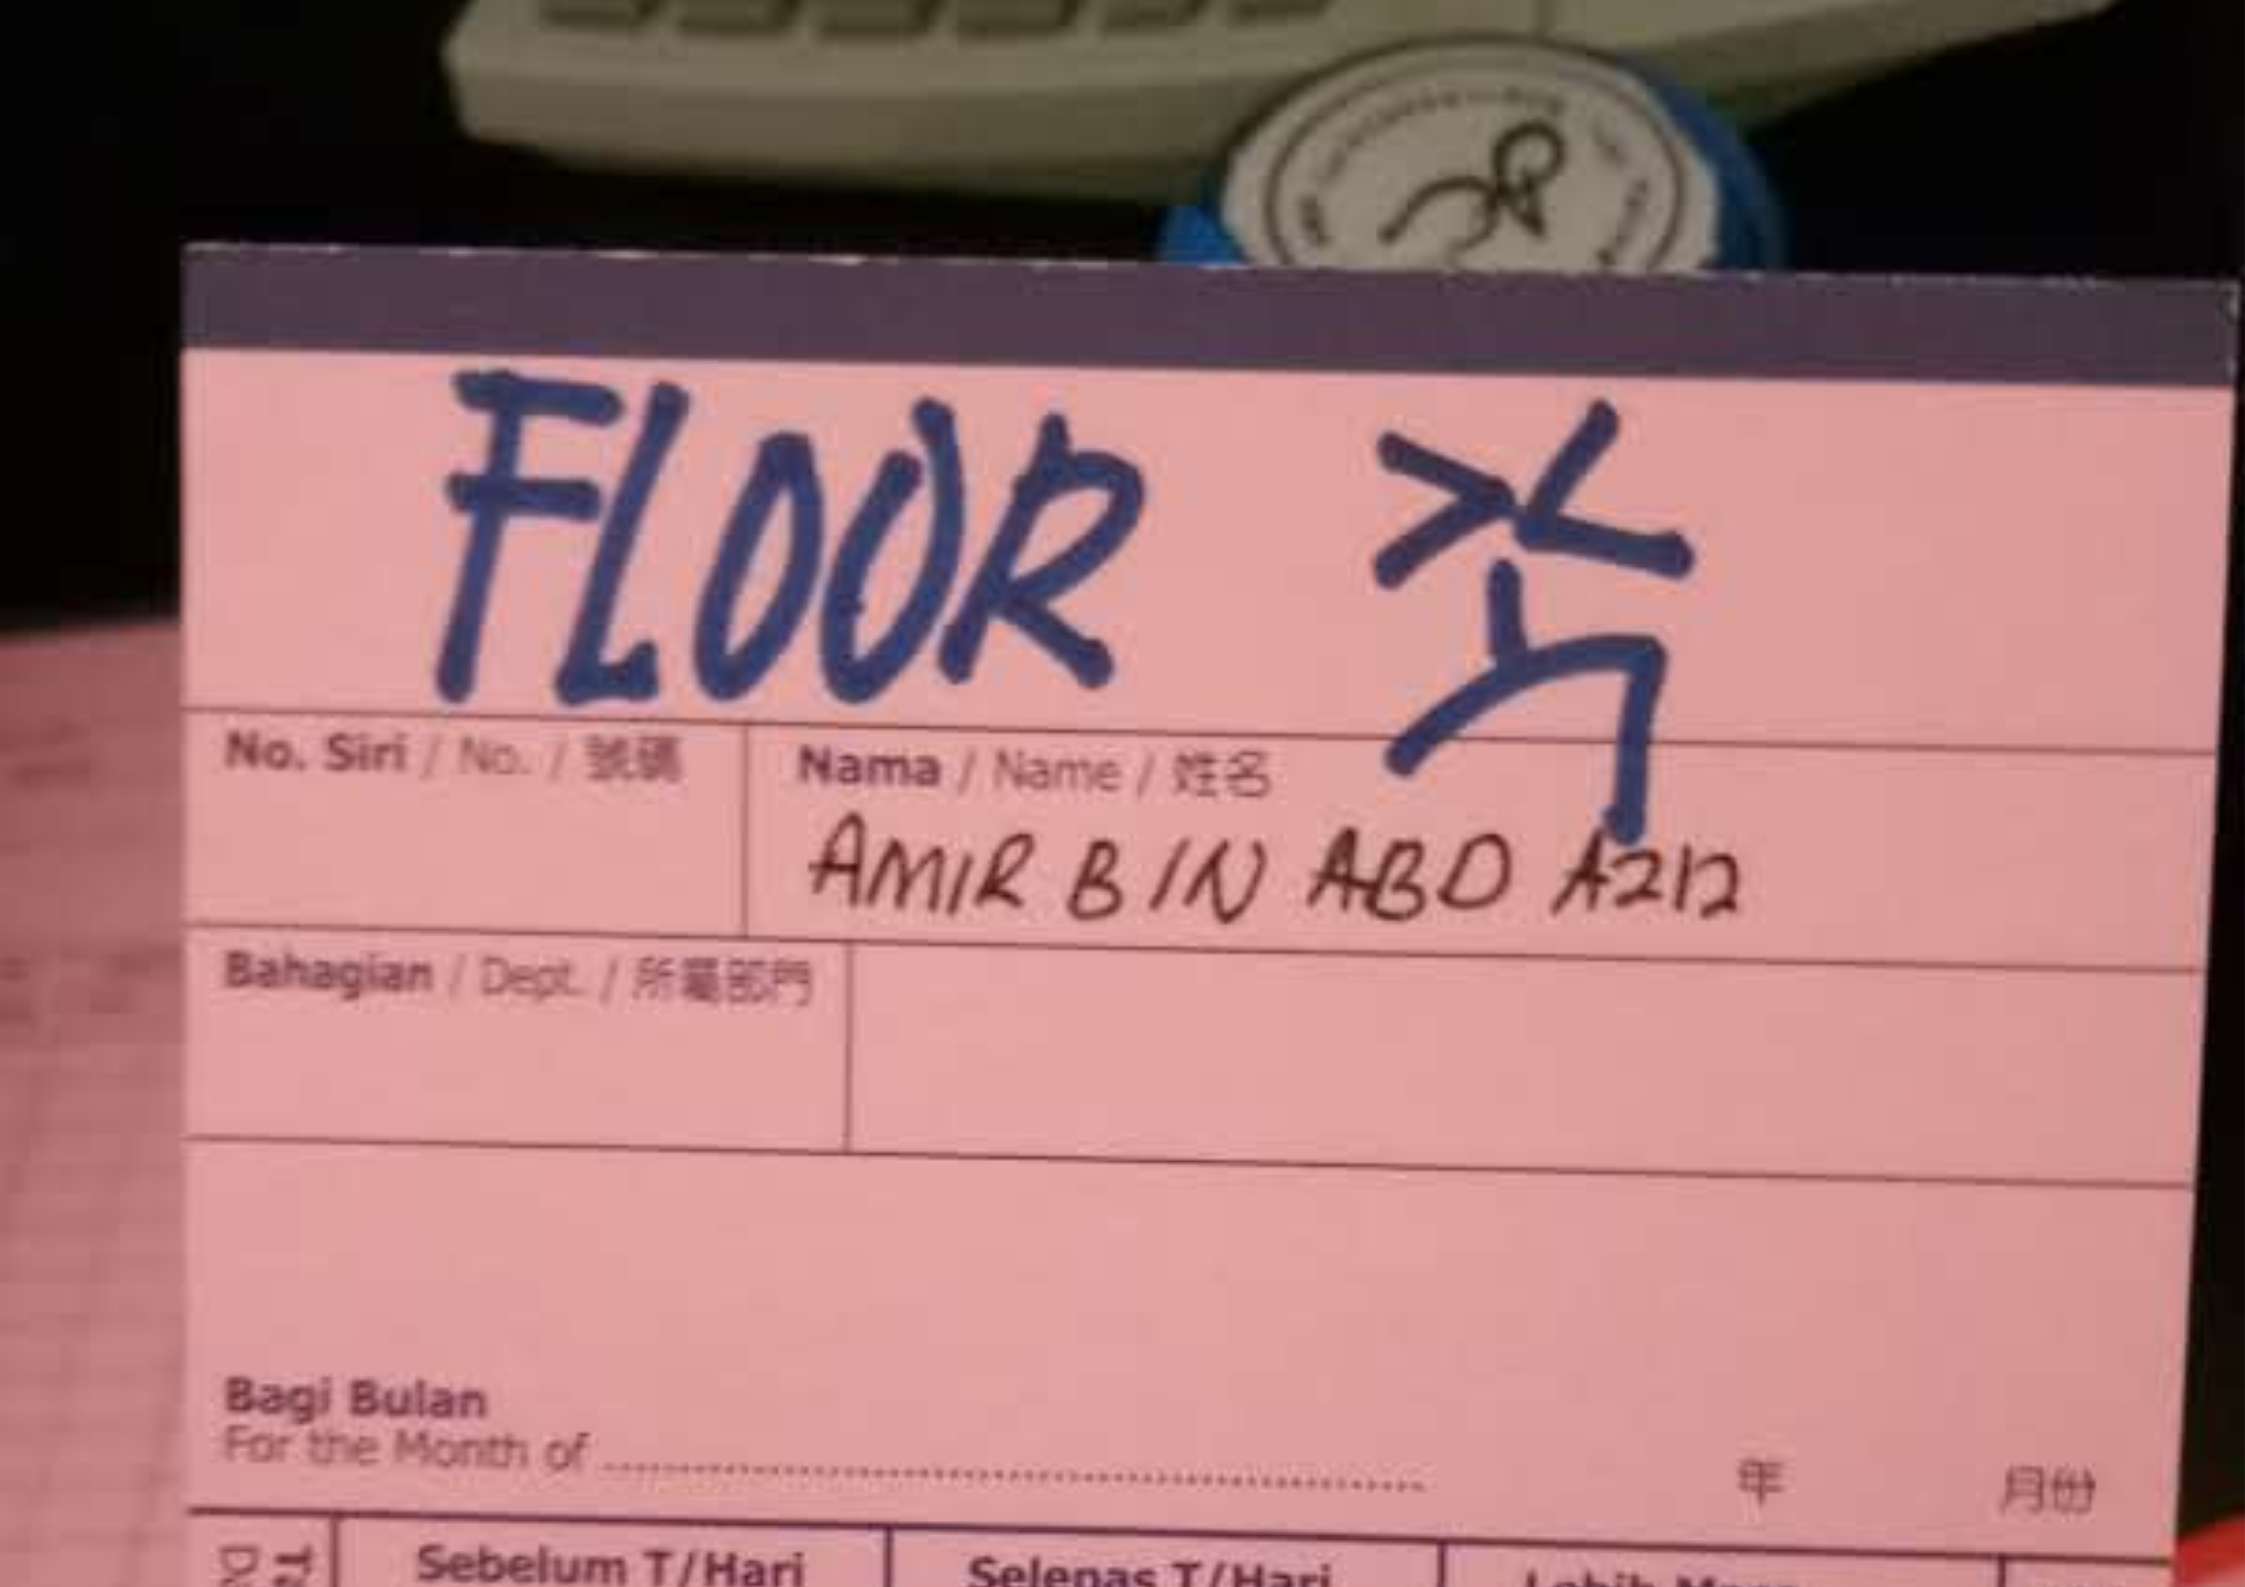 FLOOR
No. Siri / No. / 號碼
Nama / Name / 姓名
AMIR BIN ABD AZIZ
Bahagian / Dept. / 所屬部門
Bagi Bulan
For the Month of 年 月份
Sebelum T/Hari Selepas T/Hari